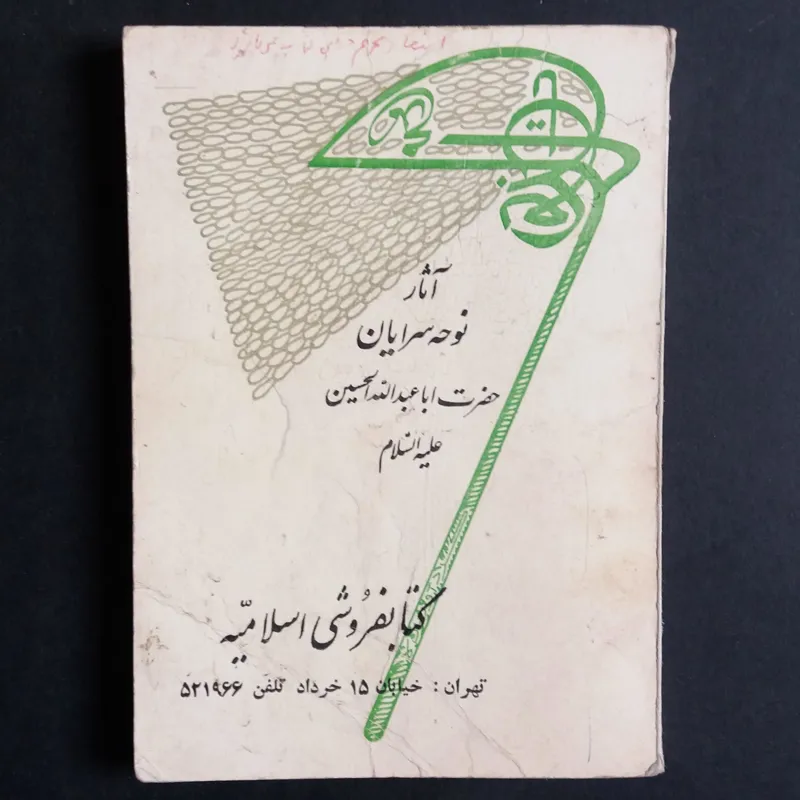 آثار
نوحه سرایان
حضرت اباعبدالله الحسین
علیه السّلام
کتابفروشی اسلامیّه
تهران : خیابان ۱۵ خرداد تلفن ۵۲۱۹۶۶